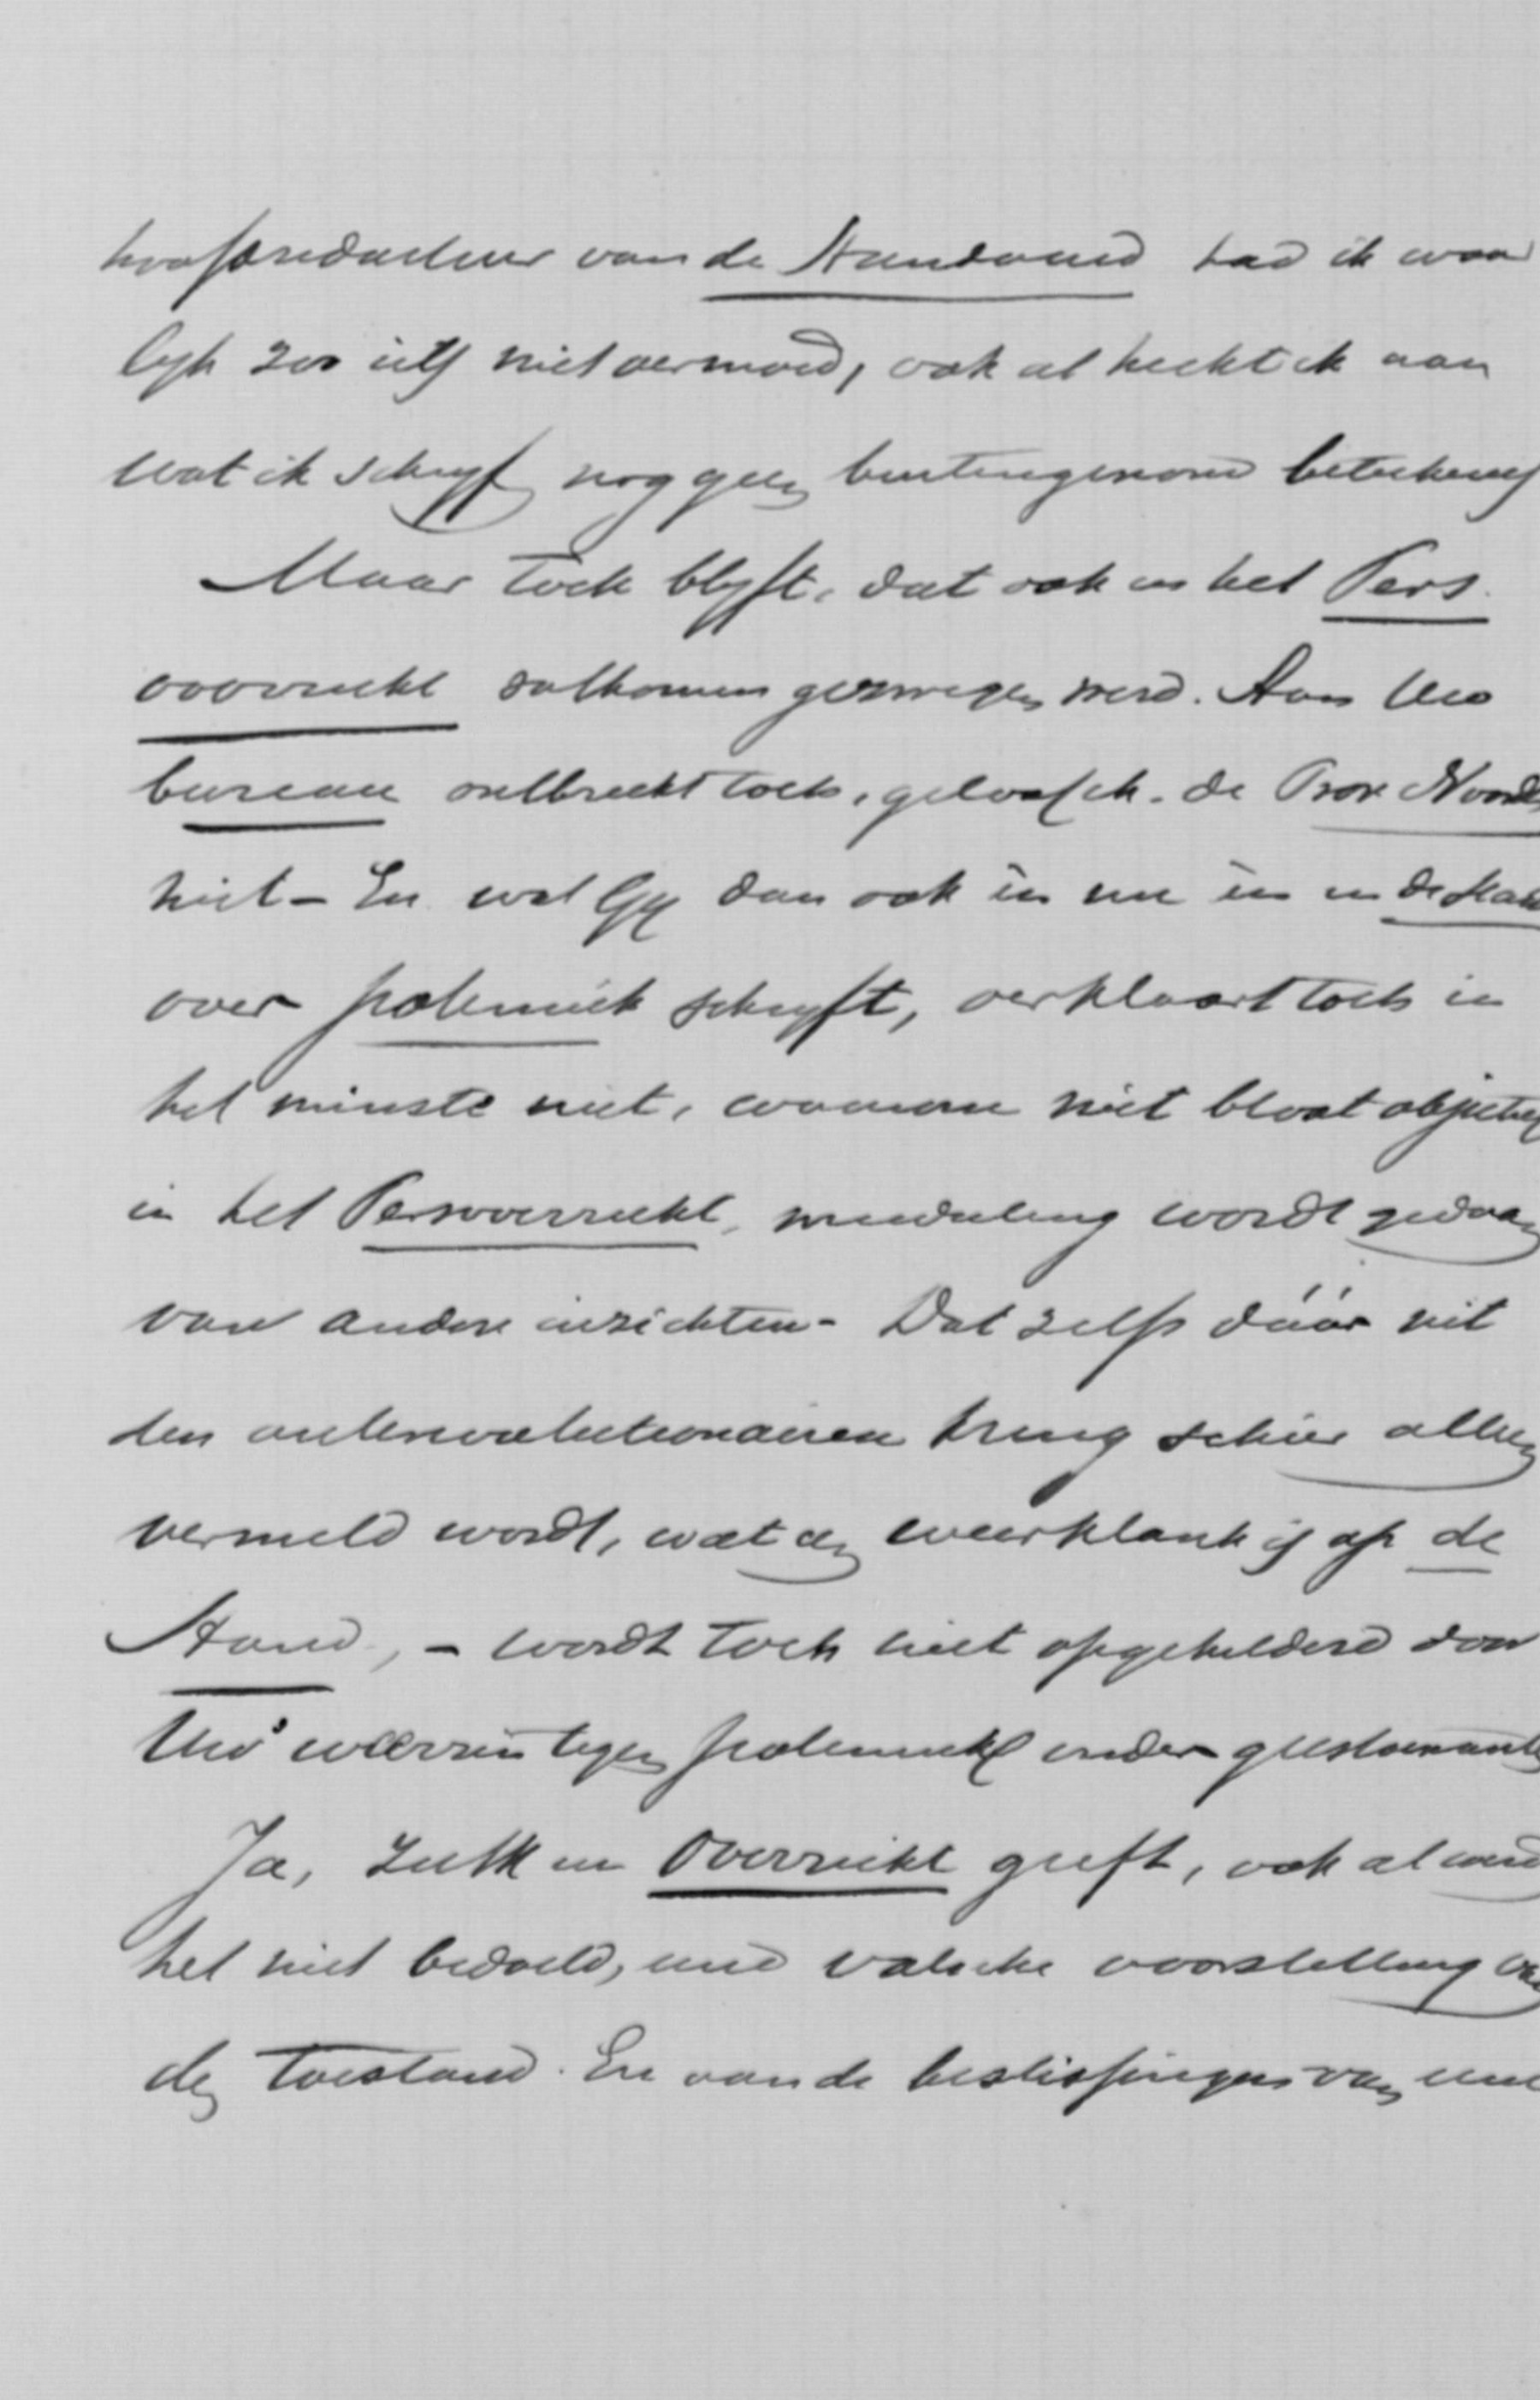 hoofdredacteur van de Standaard had ik waar
lyk zoo iets niet vermoed, ook al hecht ik aan
wat ik schryf nog geen buitengewone beteekenis
Maar toch blyft, dat ook in het Pers
overzicht volkomen gezwegen werd. Aan Uw
bureau ontbreekt toch, geloof ik. de Prov. Noord
niet - En wat Gy dan ook in nu en in de Stan
over polemiek schryft, verklaart toch in
het minste niet, waarom niet bloot objectief
in het Persoverzicht, mededeling wordt gedaan
van andere inzichten - Dat zelfs dáár uit
den antirevolutionairen kring schier alleen
vermeld wordt, wat een weerklank is op de
Stand, - wordt toch niet opgehelderd door
Uw weerzin tegen polemiek onder geestverwanten
Ja, zulk een Overzicht geeft, ook al werd
het niet bedoeld, eene valsche voorstelling van
den toestand. En van de beslissingen van eene